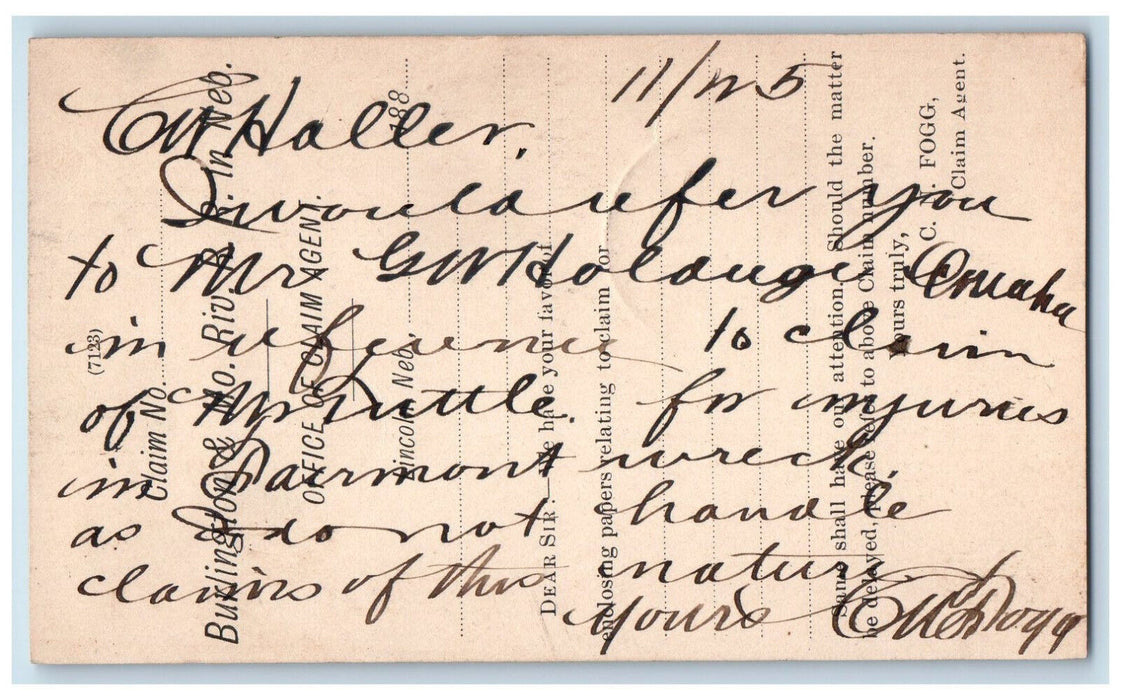 11/25
CW Haller,
I would refer you
to Mr GW Holdrege Omaha
in reference to claim
of Mr Tuttle. for injuries
in Fairmont wreck,
as I do not handle
claims of this nature
yours C.C.H. Fogg
(7123)
Claim No.
Burlington & Mo. Riv. R. R. in Neb.
OFFICE OF CLAIM AGENT.
Lincoln, Neb., 188
DEAR SIR:—We have your favor of
enclosing papers relating to claim for
Same shall have our attention. Should the matter
be delayed, please refer to above Claim number.
Yours truly,
C. C. H. FOGG,
Claim Agent.